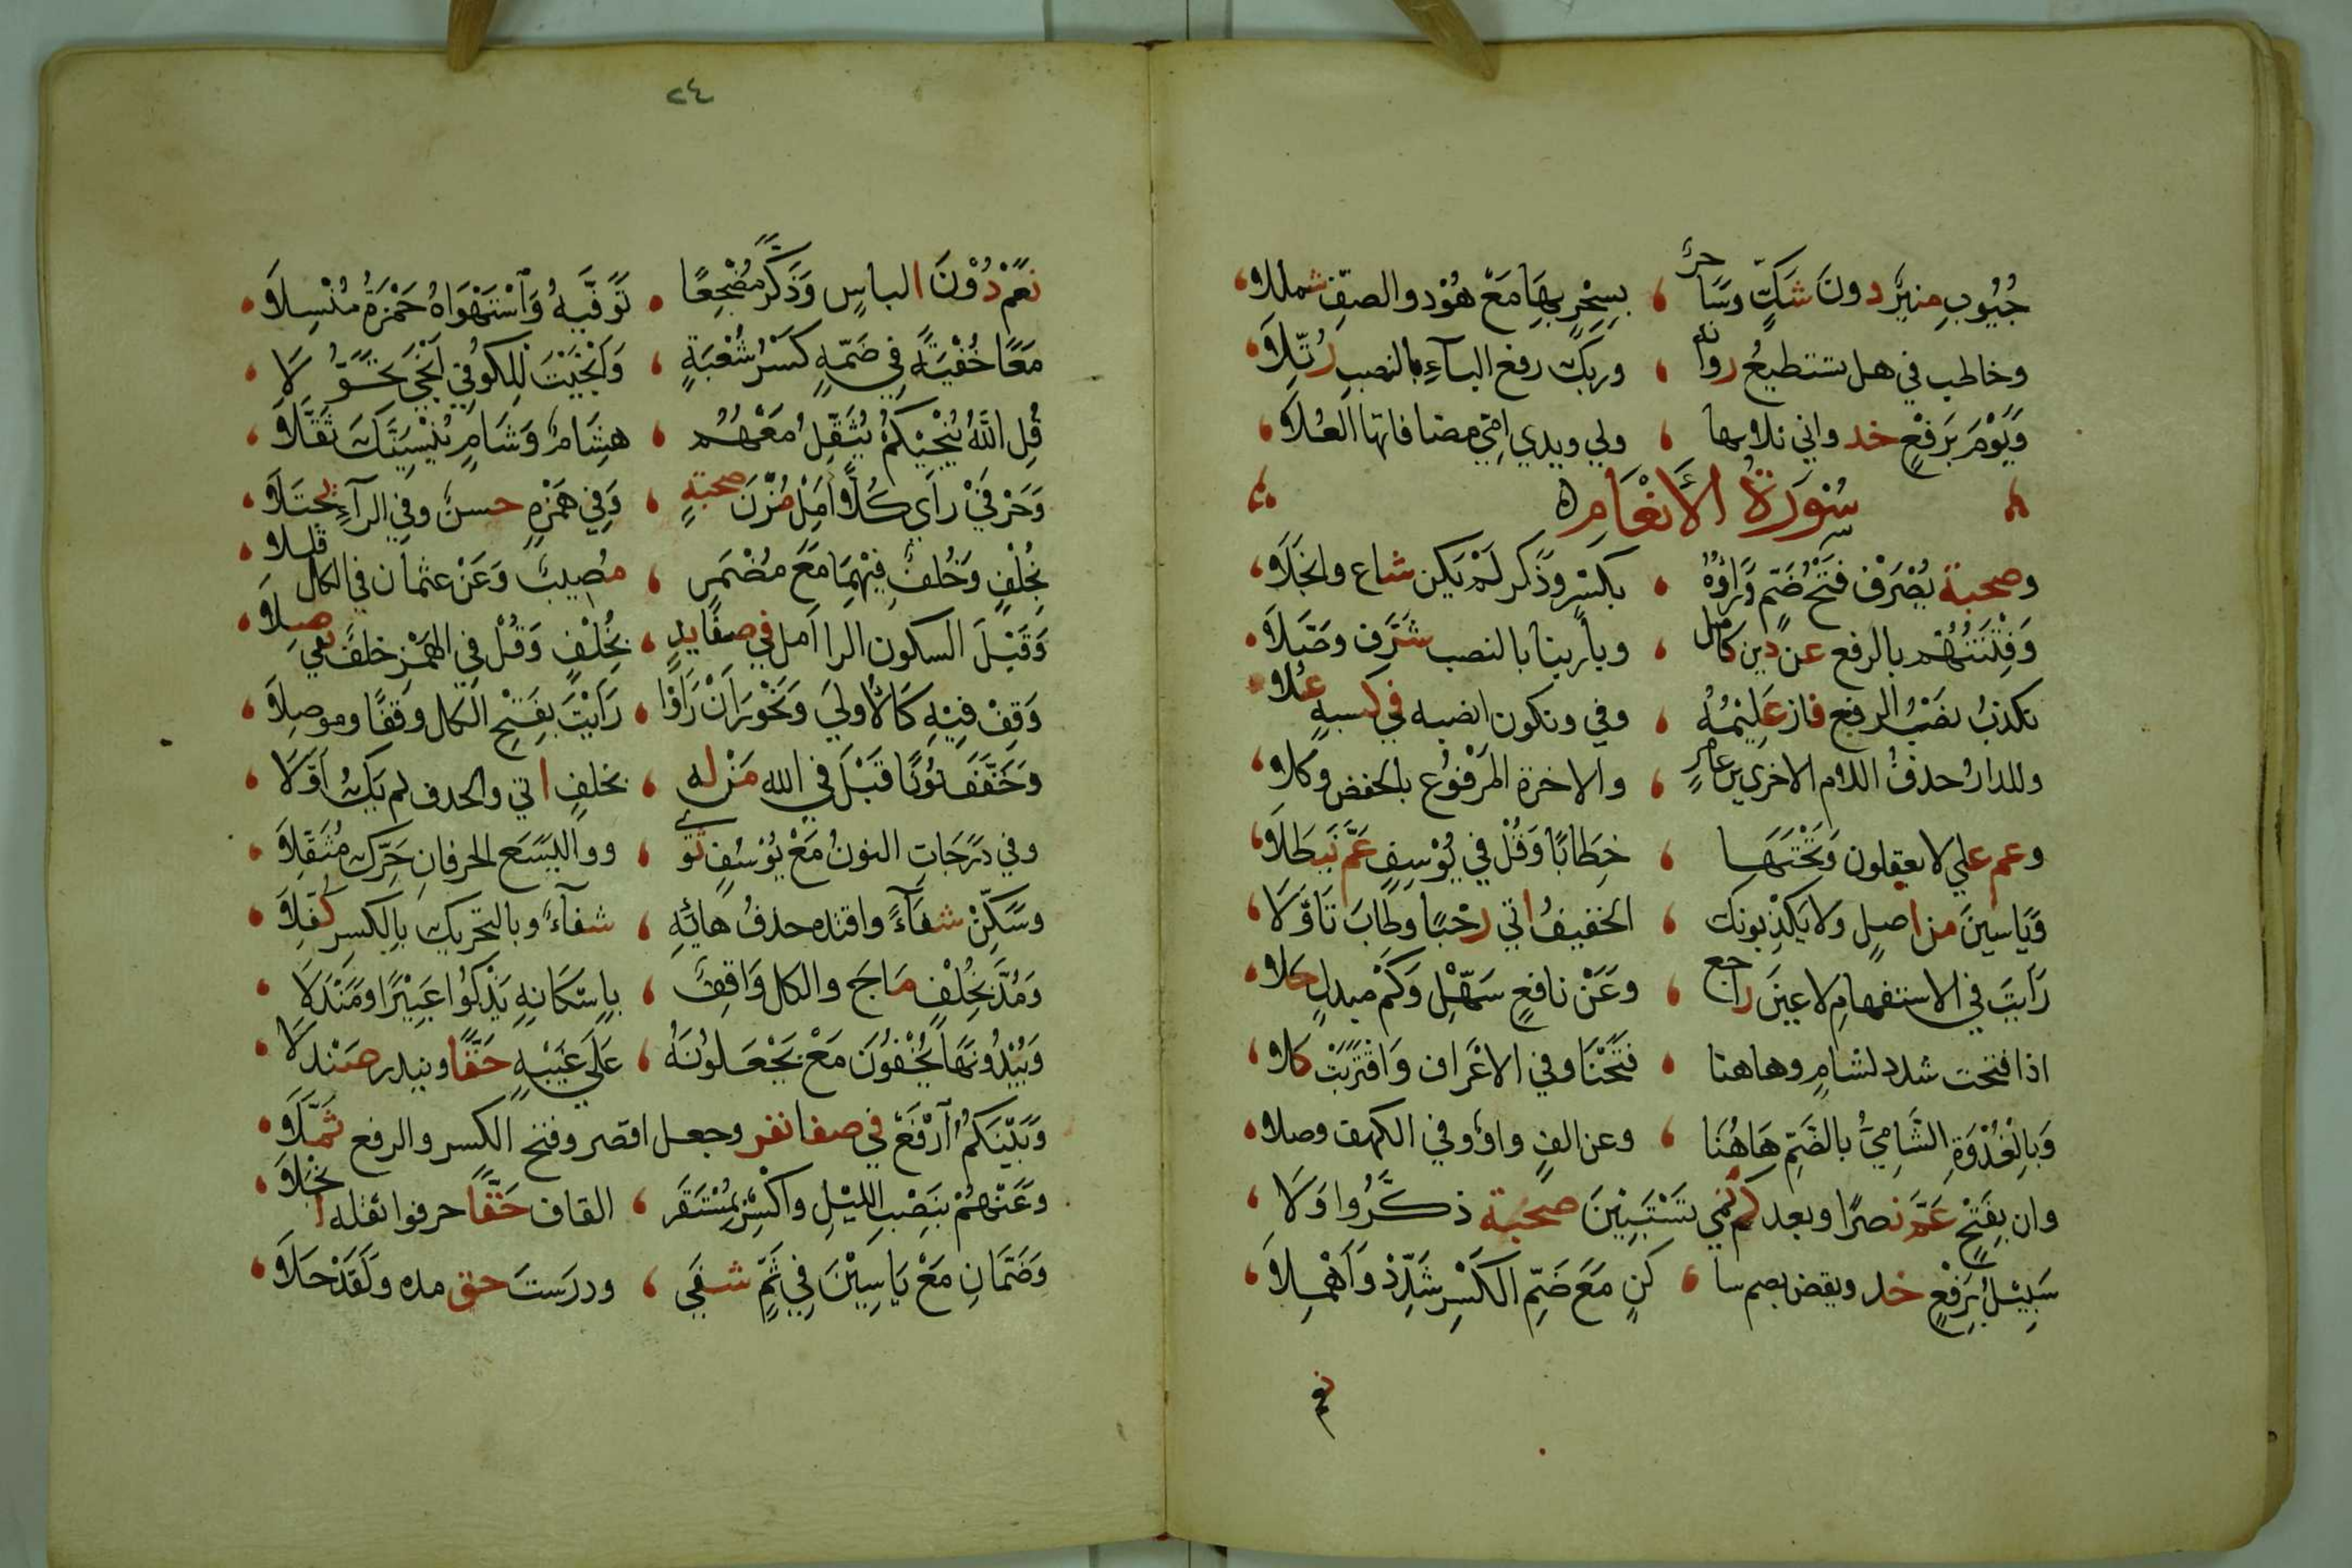 جُيُوبِ منيرٌ دونَ شَكٍّ وسَا حرٌ بِسِحْرٍ بِهَا مَعْ هُوْدَ والصفِّ شمللا
وخاطب في هل تستطيعُ رواته وربك رفع البآءِ بالنصبِ رُتِّلَا
وَيَوْمَ بَرَفْعٍ خذ واني ثلاثها ولي ويدي امي مضافاتها العُلَا
سُوْرَةُ الأَنْعَامِ
وصحبة يُصْرَفْ فَتْحُ ضَمٍّ وَرَاؤُهُ بكسْرٍ وذَكِّر لَمْ يَكن شاع وانجَلَا
وَفِتْنَتُهُمْ بالرفع عن دين كامل وبا ربنا بالنصب شَرَّف وصَّلَا
نكذبُ نصْبُ الرفع فازَ عَلِيْمُهُ وفي ونكون انصبه في كسبهِ عُلا
وللدارُ حذفُ اللام الاخرى بن عامرٍ والاخرة المَرْفُوْعُ بالخفض وكلا
وعم علي لا يعقلون وَتَحْتَهَا خِطَابًا وَقُلْ في يُوْسِفٍ عَمَّ نَيطَلَا
وَيَاسينَ من اصلٍ ولا يَكْذِبُونك الخفيفُ اتى رُحْبًا وطَابَ تَاَوُّلَا
رَاَيتَ في الاستفهامِ لا عينَ راجع وَعَنْ نافعٍ سَهِّلْ وَكَمْ مبدلٍ جَلا
اذا فتحت شدد لشامٍ وهاهنا فَتَحْنَا وفي الاعْرَاف وَاقْتَرَبَتْ كلا
وَبِالْغُدْوَةِ الشَامِيُّ بالضَّمِّ هَاهُنَا وعن الفٍ واوٌ وفي الكهف وصلا
وان بِفَتْحٍ عَمَّ نصرًا وبعد كَمْ نمي تَسْتَبِيْنَ صحبة ذكَّرُوا وَلَا
سَبِيْلُ بِرَفْعٍ خذ ويقض بضم سا كنٍ مَعَ ضَمِّ الكَسْرِ شَدِّدْ وَاَهْمِلَا
نعم
٢٤
نَعَمْ دُوْنَ الباسٍ وَذَكَّرَ مُضْجِعًا تَوَفَّيهُ وَاسْتَهْوَاهُ حَمْزَةُ مُنْسِلَا
مَعًا خُفْيَةً فِي ضَمِّهِ كَسْرُ شُعْبَةٍ وَاَنْجَيْتَ لِلكُوْفِيِّ اَنْجَى تَحَوَّلَا
قُلِ اللَّهُ يُنْجِيْكُمُ يُثَقِّلُ مَعْهُمُ هِشَامٌ وَشَامٍ يُنْسِيَنَّكَ ثَقَّلَا
وَحَرْفَيْ رَاَى كُلًّا اَمِلْ مُزْنَ صحبةٍ وَفِي هَمْزِهِ حسنٌ وفِي الرآءِ يُجْتَلَا
بِخُلْفٍ وَخُلْفٌ فِيْهِمَا مَعَ مُضْمَرٍ مُصِيبٌ وَعَنْ عثمان في الكل قللا
وَقَبْلَ السكون الرا اَمل في صفَا يدٍ بِخُلْفٍ وَقُلْ فِي الهَمْزِ خلفٌ يَقي صِلَا
وَقِفْ فِيْهِ كَالْاُولَى وَنَحْوُ رَاَتْ رَاَوْا رَاَيْتَ بِفَتْحِ الكل وقفًا وموصِلا
وَخَفَّفَ نُوْنًا قَبْلَ في الله مَنْ له بخلفٍ اتى والحذف لم يَكُ اَوَّلَا
وفي دَرَجَاتِ النونُ مَعْ يُوْسُفٍ ثوى ووالَّيْسَعَ الحرفانِ حَرِّك مُثَقِّلَا
وسَكِّنْ شفَآءً واقتده حذفُ هائِهِ شفآءٌ وبالتحريك بالكسرِ كُفِّلَا
وَمُدَّ بِخُلْفٍ مَاجَ والكل وَاقِفٌ باِسْكَانِهِ يَذْكُوا عَبِيْرًا ومَنْدَلَا
وَيُبْدُوْنَهَا يُخْفُوْنَ مَعْ يَجْعَلُونَهُ عَلَى غَيْبِهِ حَقًّا وينذر صَنْدَلَا
وَبَيْنَكُمُ اَرْفَعْ في صفا نفر وجعل اقصر وفتح الكسر والرفع ثُمِّلَا
وَعَنْهُمْ بِنَصْبِ اللَيْلِ وَاكْسِرْ بِمُسْتَقَر القاف حَقًّا حرفوا ثقله انْجَلَا
وَضَمَّانِ مَعْ يَاسِيْنَ فِي ثَمَرٍ شفَى ودرَستَ حق مده وَلَقَدْ حَلَا